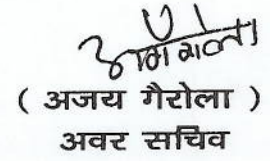 ( अजय गैरोला )
अवर सचिव